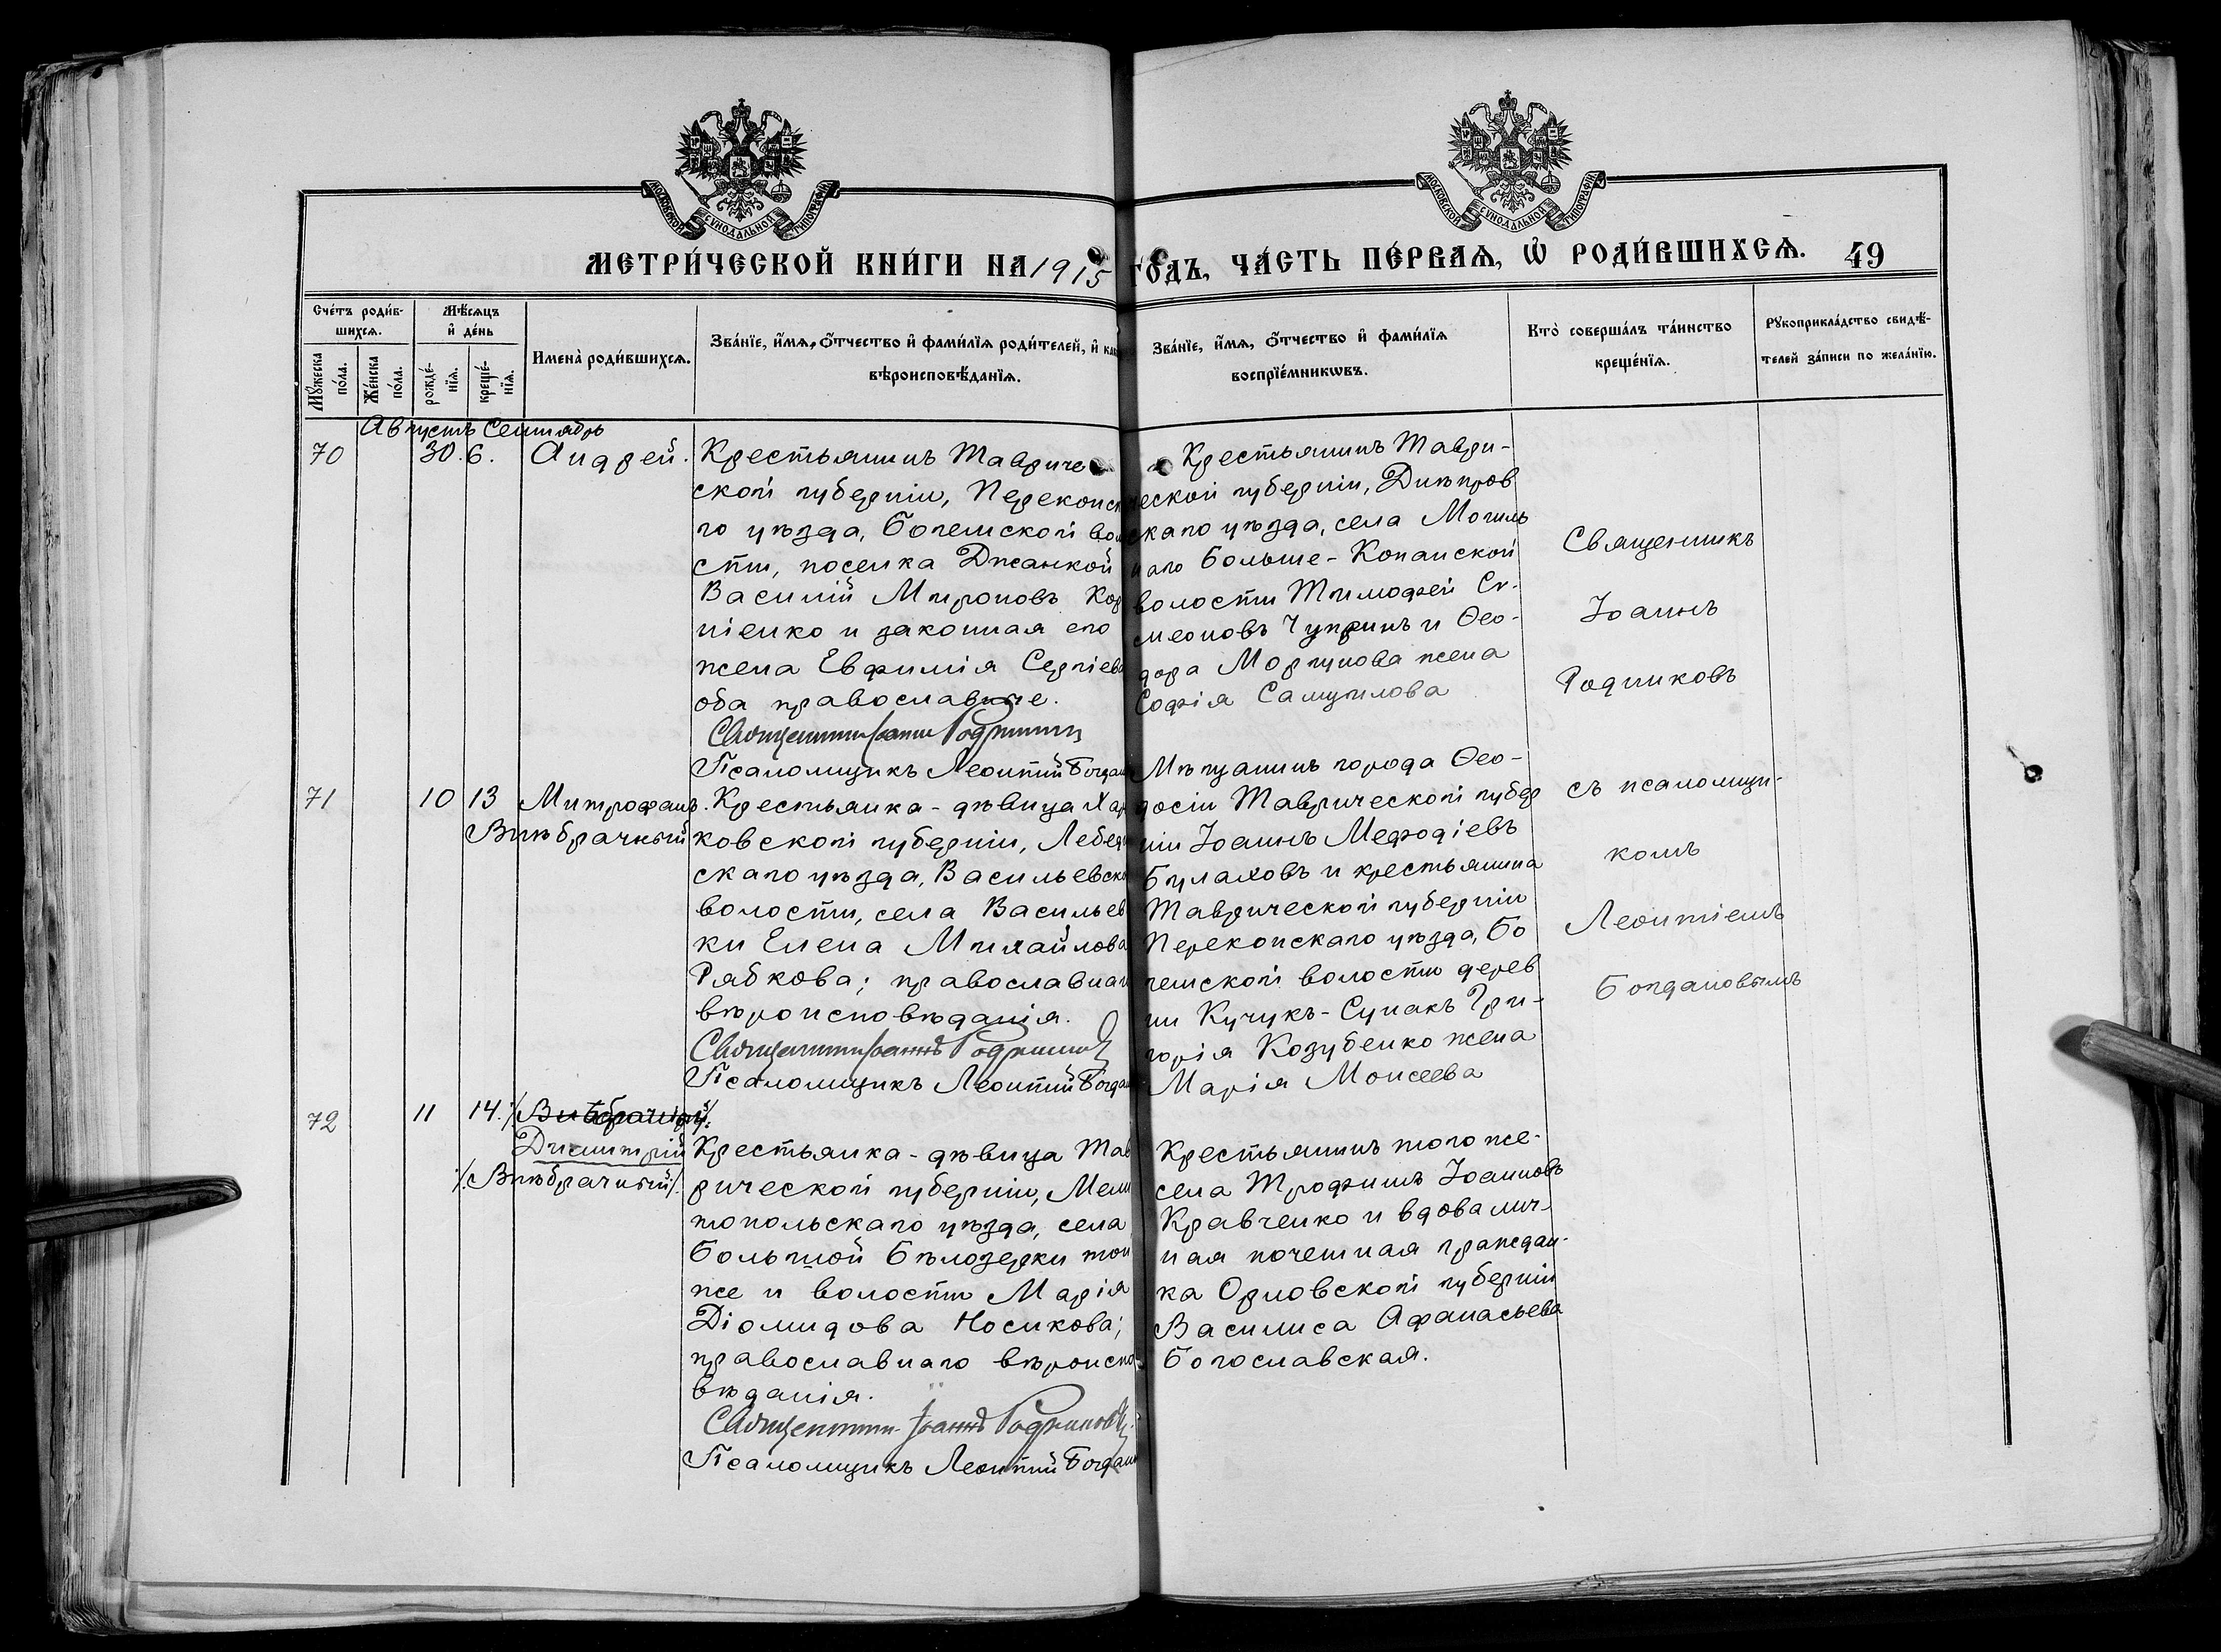 МОСКОВСКОЙ СѴНОДАЛЬНОЙ ТИПОГРАФІИ
МОСКОВСКОЙ СѴНОДАЛЬНОЙ ТИПОГРАФІИ
МЕТРИ́ЧЕСКОЙ КНИ́ГИ НА 1915 ГО́ДЪ, ЧА́СТЬ ПЕ́РВАѦ, Ѡ҆ РОДИ́ВШИХСѦ. 49
Сче́тъ роди́в-
шихсѧ.
Мꙋ́жеска
по́ла.
Же́нска
по́ла.
Мѣ́сѧцъ
и҆ де́нь
рожде́-
нїѧ.
креще́-
нїѧ.
Имена̀ роди́вшихсѧ.
Зва́нїе, и҆́мѧ, ѻ҆́тчество и҆ фами́лїѧ роди́телей, и҆ как
вѣроисповѣ́данїѧ.
Зва́нїе, и҆́мѧ, ѻ҆́тчество и҆ фами́лїѧ
воспрїе́мникѡвъ.
Кто̀ соверша́лъ та́инство
креще́нїѧ.
Рꙋкоприкла́дство свидѣ́-
телей за́писи по жела́нїю.
Августъ Сентябрь
70 30. 6. Андрей.
Крестьянинъ Тавриче
ской губерніи, Перекопск
го уѣзда, Богемской вол
сти, поселка Джанкой
Василій Мироновъ Кор
ніенко и законная его
жена Евфимія Сергіева
оба православные.
Священникъ Іоаннъ Родниковъ
Псаломщикъ Леонтій Богдан
Крестьянинъ Таври-
ческой губерніи, Днѣпров
скаго уѣзда, села Могиль
наго Больше-Копанской
волости Тимофей Си-
меоновъ Чупринъ и Ѳео-
дора Моргунова жена
Софія Самуилова
71 10 13 Митрофанъ.
Внѣбрачный
Крестьянка-дѣвица Хар
ковской губерніи, Лебед
скаго уѣзда, Васильевско
волости, села Васильев
ки Елена Михайлова
Рябкова; православнаг
вѣроисповѣданія.
Священникъ Іоаннъ Родниковъ
Псаломщикъ Леонтій Богдан
Мѣщанинъ города Ѳео-
досіи Таврической губер
ніи Іоаннъ Меѳодіевъ
Булаховъ и крестьянина
Таврической губерніи
Перекопскаго уѣзда, Бо
гемской волости дерев
ни Кучукъ-Сунакъ Гри-
горія Козубенко жена
Марія Моисеева
72 11 14. ./. Внѣбрачный ./.
Димитрій
./. Внѣбрачный ./.
Крестьянка-дѣвица Тав
рической губерніи, Мели
топольскаго уѣзда, села
Большой Бѣлозерки той
же и волости Марія
Діомидова Носикова;
православнаго вѣроиспо
вѣданія.
Священникъ Іоаннъ Родниковъ
Псаломщикъ Леонтій Богдан
Крестьянинъ того же-
села Трофимъ Іоанновъ
Кравченко и вдова лич-
ная почетная граждан-
ка Орловской губерніи
Василиса Афанасьева
Богославская.
Священникъ
Іоаннъ
Родниковъ
съ псаломщи-
комъ
Леонтіемъ
Богдановымъ